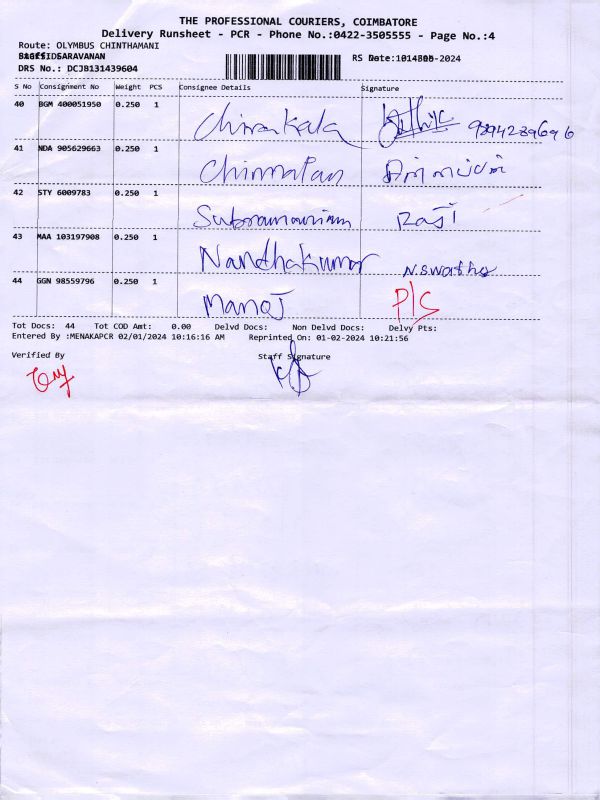 THE PROFESSIONAL COURIERS, COIMBATORE
Delivery Runsheet - PCR - Phone No.:0422-3505555 - Page No.:4
Route: OLYMBUS CHINTHAMANI
SARAVANAN
RS Date:
-2024
DRS No.: DCJB131439604
S No Consignment No Weight PCS Consignee Details Signature
40 BGM 400051950 0.250 1 Chinrakala
41 NDA 905629663 0.250 1 Chinnapan
42 STY 6009783 0.250 1 Subramaniam Raji
43 MAA 103197908 0.250 1 Nandhakumar N.Swathy
44 GGN 98559796 0.250 1 Manoj P/S
Tot Docs: 44 Tot COD Amt: 0.00 Delvd Docs: Non Delvd Docs: Delvy Pts:
Entered By :MENAKAPCR 02/01/2024 10:16:16 AM Reprinted On: 01-02-2024 10:21:56
Verified By Staff Signature